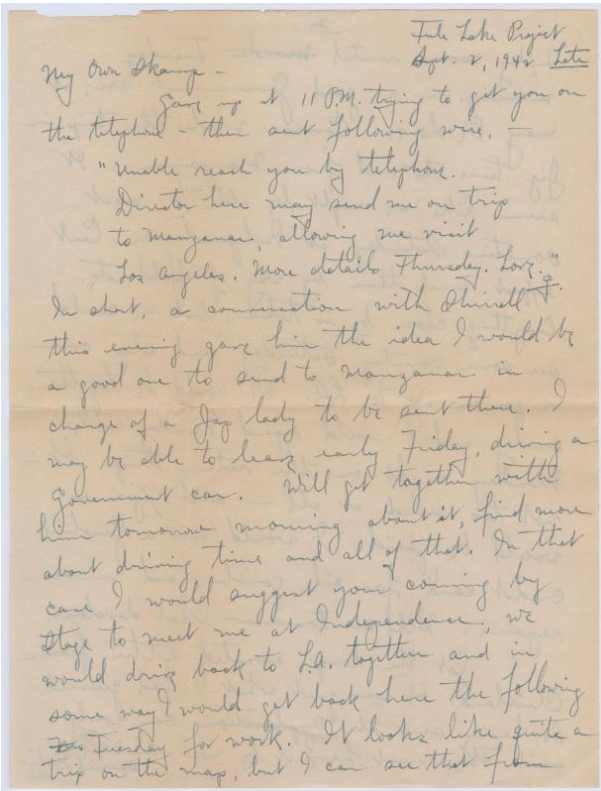 Tule Lake Project
Sept. 2, 1942 Late
My Own Skamp -
Gave up at 11 P.M. trying to get you on
the telephone - then sent following wire. —
"Unable reach you by telephone.
Director here may send me on trip
to Manzanar, allowing me visit
Los Angeles. More details Thursday. Love."
In short, a conversation with Shirrell
this evening gave him the idea I would be
a good one to send to Manzanar in
charge of a Jap lady to be sent there. I
may be able to leave early Friday, driving a
Government car. Will get together with
him tomorrow morning about it, find more
about driving time and all of that. In that
case I would suggest your coming by
stage to meet me at Independence, we
would drive back to L.A. together and in
some way I would get back here the following
Tuesday for work. It looks like quite a
trip on the map, but I can see that from